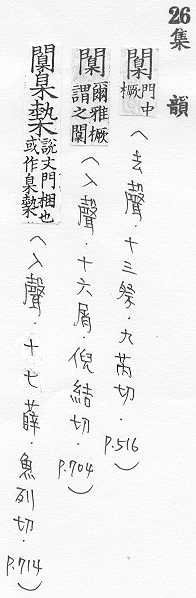 26集　韻
闑門中橛（去聲．十三祭．九芮切．P.516）
闑爾雅橛謂之闑（入聲．十六屑．倪結切．P.704）
闑臬槷說文門梱也或作臬槷（入聲．十七薛．魚列切．P.714）